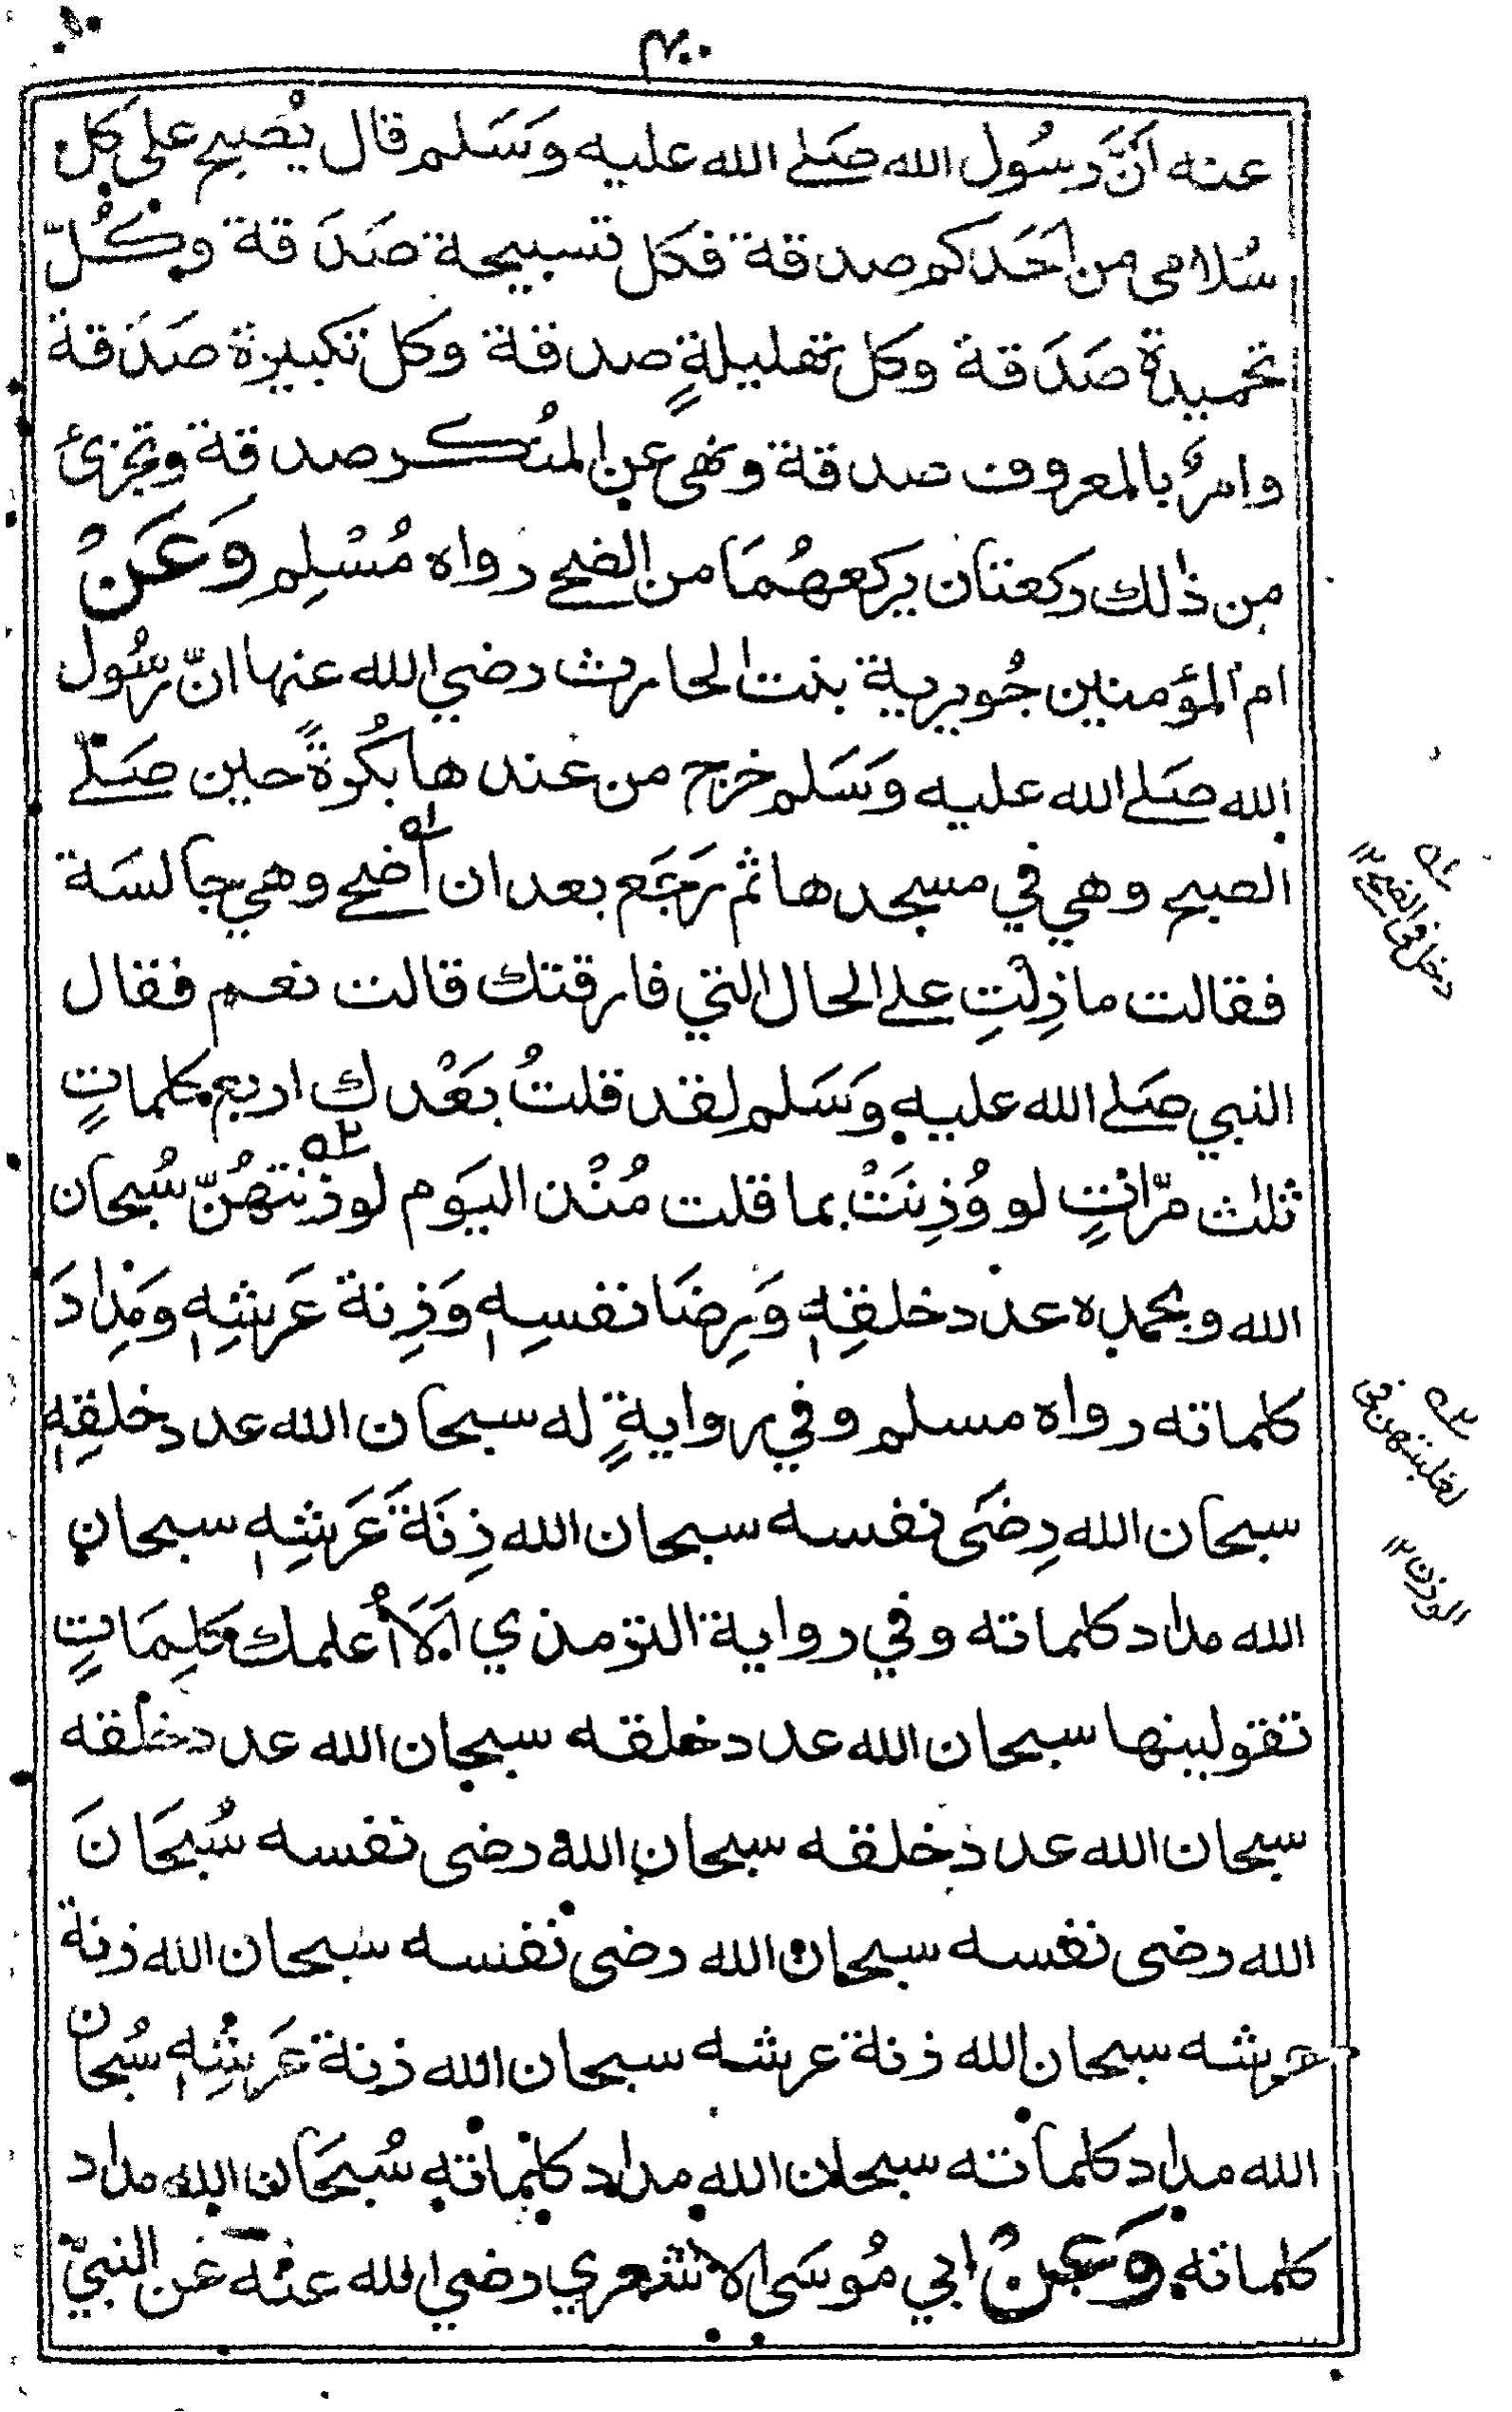 ٤٠٠
عنه اَنَّ رسُول الله صَلے الله عليه وَسَلم قال يُصْبح على كل
سُلامى من اَحَدكم صدقة فكل تسبيحة صَدَقة وكُلّ
تحميدة صَدَقة وكل تهليلةٍ صدقة وكل تكبيرة صَدَقة
وامرٌ بالمعروف صدقة ونهى عن المنُكر صدقة وتجزئ
من ذٰلك ركعتان يركعهُمَا من الضحے رواه مُسْلِم وَعَنْ
ام المؤمنين جُويرية بنت الحارث رضي الله عنها انّ رسُول
الله صَلے الله عليه وَسَلم خرج من عندها بكُرةً حين صَلّے
الصبح وهي في مسجدها ثم رَجَع بعد ان اَضحے وهي جالسَة
فقالت مازِلْتِ علے الحال التي فارقتك قالت نعم فقال
النبي صَلے الله عليه وَسَلم لقد قلتُ بَعْدك اربع كلماتٍ
ثلٰث مرّاتٍ لو وُزِنَتْ بما قلت مُنْذ اليَوم لوزنتهُنّ سُبحان
الله وبحمده عدد خلقِهٖ وَرِضَا نفسِهٖ وَزِنة عَرشِهٖ وَمِدادَ
كلماته رواه مسلم وفي روايةٍ له سبحان الله عدد خلقِهٖ
سبحان الله رِضَى نفسه سبحان الله زِنَةَ عَرشِهٖ سبحان
الله مداد كلماته وفي رواية الترمذي اَلَا اُعلمك كلِمَاتٍ
تقولينها سبحان الله عدد خلقه سبحان الله عدد خلقه
سبحان الله عدد خلقه سبحان الله رضى نفسه سُبحَانَ
الله رضى نفسه سبحان الله رضى نفسه سبحان الله زنة
عرشه سبحان الله زنة عرشه سبحان الله زنة عَرشِهٖ سُبحان
الله مداد كلماته سبحان الله مداد كلماته سُبحَان الله مداد
كلماته وَعَنْ ابي مُوسَى الاشعري رضي الله عنْه عَن النبيّ
دخل فى الضحے ١٢
لغلبتهن فى
الوزن ١٢